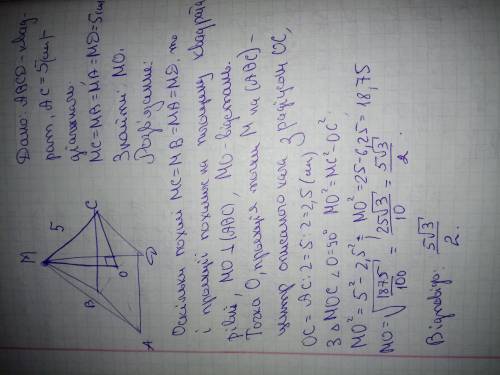 Дано: ABCD-квад-
рат, AC = 5см,
MC=MB=MA=MD=5см
Знайти: MO.
Розв'язання:
Оскільки похилі MC=MB=MA=MD, то
і проекції похилих на площину квадрата
рівні, MO⊥(ABC), MO-відстань.
Точка O, проекція точки M на (ABC) –
центр описаного кола з радіусом OC,
OC = AC:2 = 5:2 = 2,5 (см)
З △MOC ∠O=90° MO²=MC²-OC²
MO² = 5² - 2,5² MO² = 25-6,25 = 18,75
MO = √1875/100 = 25√3/10 = 5√3/2.
Відповідь: 5√3/2.
M
5
C
B
O
A
D